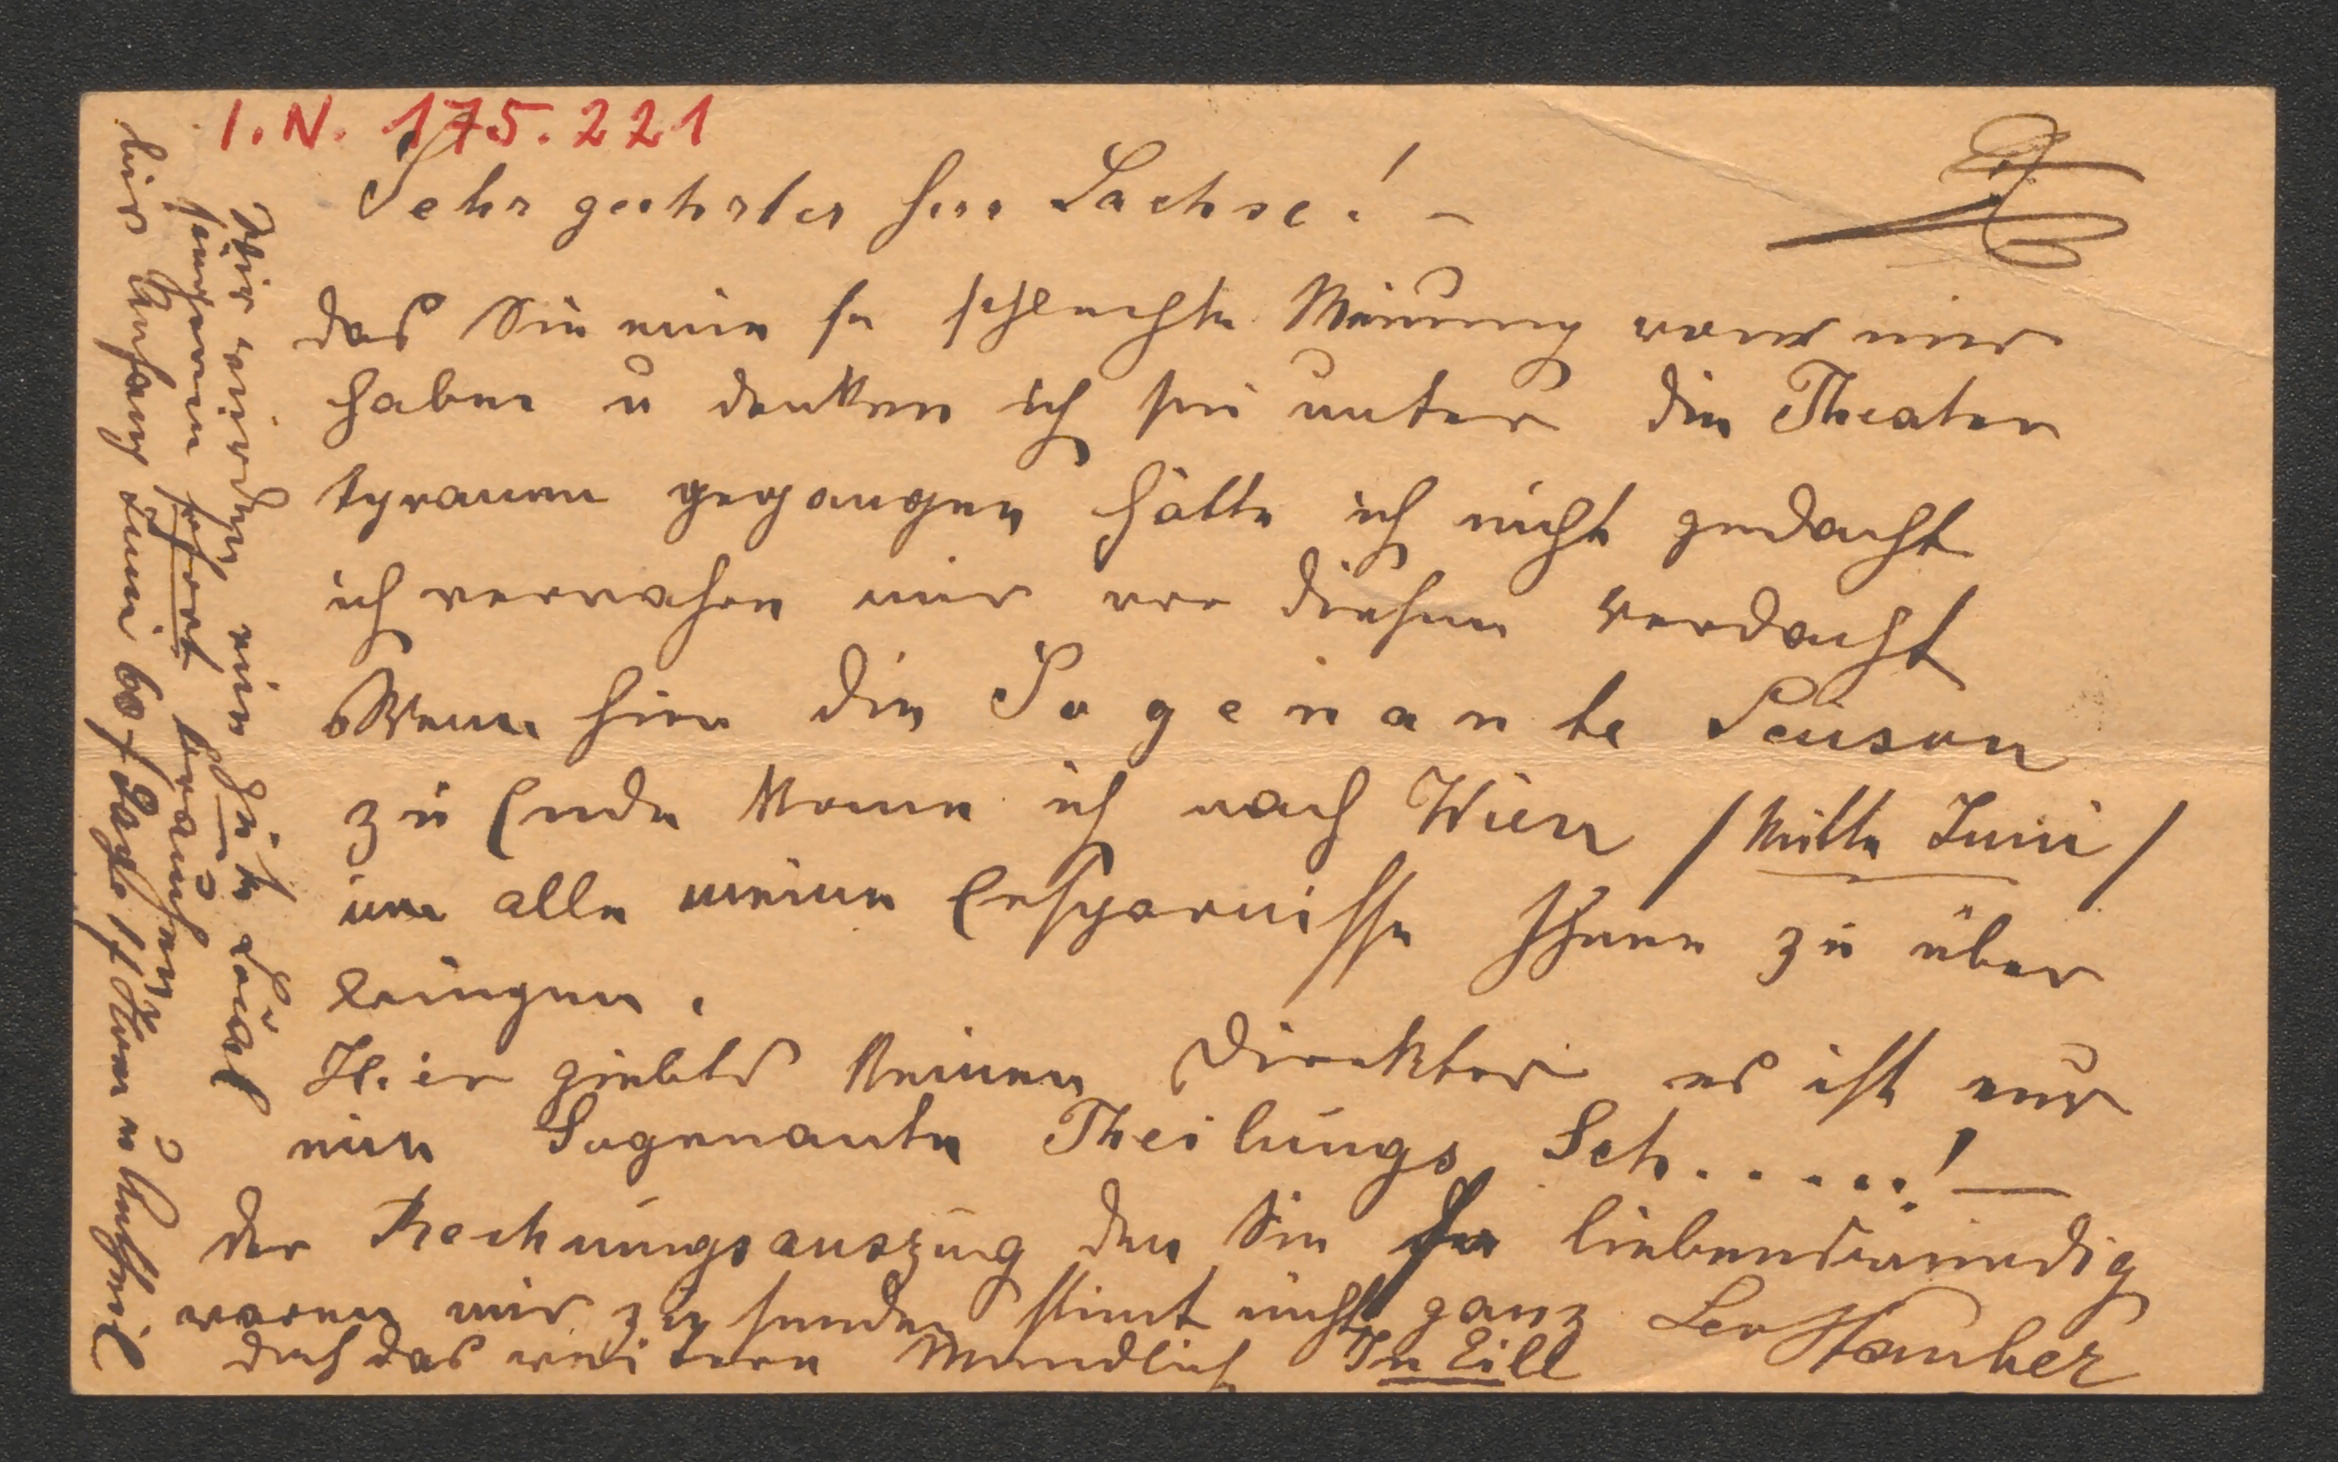 I.N. 175.221
Sehr geehrter Herr Sachse! –
das Sie eine so schlechte Meinung von mir
haben u denken ich sei unter die Theater
tyranen gegangen hätte ich nicht gedacht
ich verwahre mir vor diesem Verdacht
Wenn hier die Sogenante Seison
zu Ende komm ich nach Wien / Mitte Juni /
um alle meine Ersparnisse Ihnen zu über
bringen.
Hier giebts keinen Direktor es ist nur
eine Sogenante Theilungs Sch.....! —
der Rechnungsauszug den Sie so liebenswürdig
waren mir zu senden stimt nicht ganz
doch das weitere Mündlich In Eill Leo Stauber
Wir würden eine gute Lokal
sofort brauchen
bis Anfang Juni 60 f Gage 1 f u